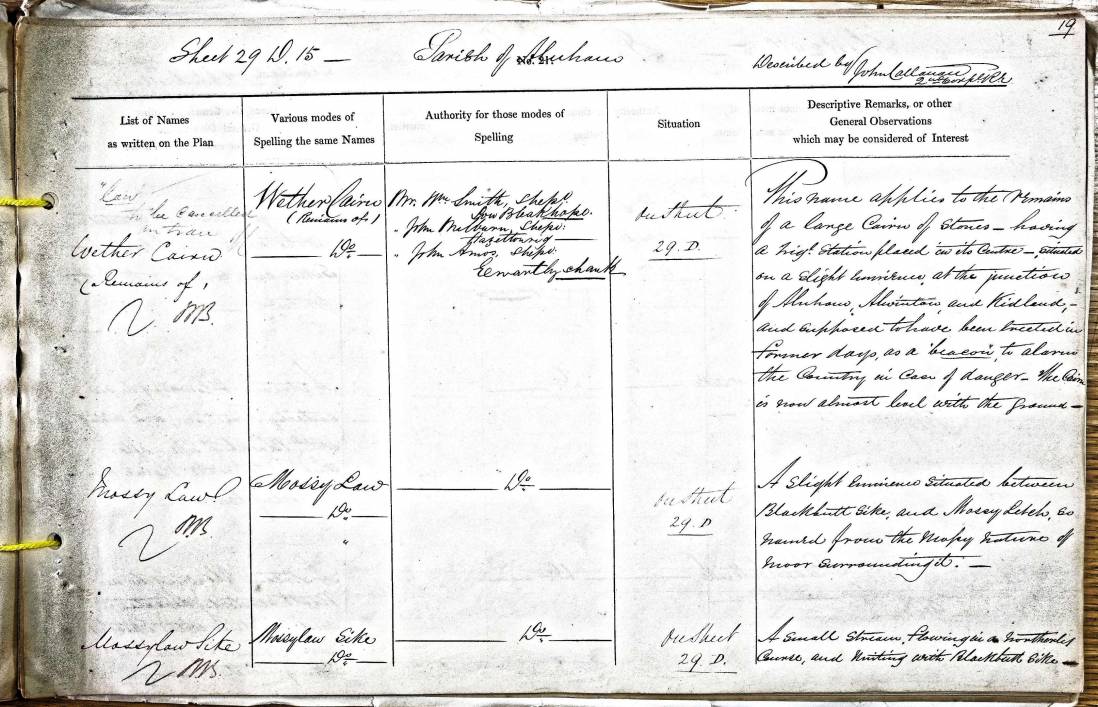 19
Sheet 29 D. 15 — Parish of Alnham
No. 21
Described by John Callanan
2nd Corpl R.E
List of Names
as written on the Plan
Various modes of
Spelling the same Names
Authority for those modes of
Spelling
Situation
Descriptive Remarks, or other
General Observations
which may be considered of Interest
"Cairn"
to be cancelled
on trace
Wether Cairn
(Remains of)
Wether Cairn
(Remains of)
Do
Mr. Wm Smith, Shepd.
Low Bleakhope.
" John Milburn, Shepd:
" John Amos, Shepd:
Ewartly Shank
on Sheet
29. D.
This name applies to the Remains
of a large Cairn of Stones — having
a Trigl. Station placed in its Centre — situated
on a Slight Eminence, at the junction
of Alnham, Alwinton, and Kidland, —
and supposed to have been Erected in
former days, as a 'beacon', to alarm
the Country in Case of danger — The Cairn
is now almost level with the ground —
Mossy Law
Mossy Law
Do
"
Do
on Sheet
29. D
A Slight Eminence Situated between
Blackbutt Sike, and Mossy Letch, so
named from the Mossy nature of
Moor Surrounding it. —
Mossylaw Sike
Mossylaw Sike
Do
Do
on Sheet
29. D.
A Small Stream, flowing in a Northerly
Course, and Uniting with Blackbutt Sike —